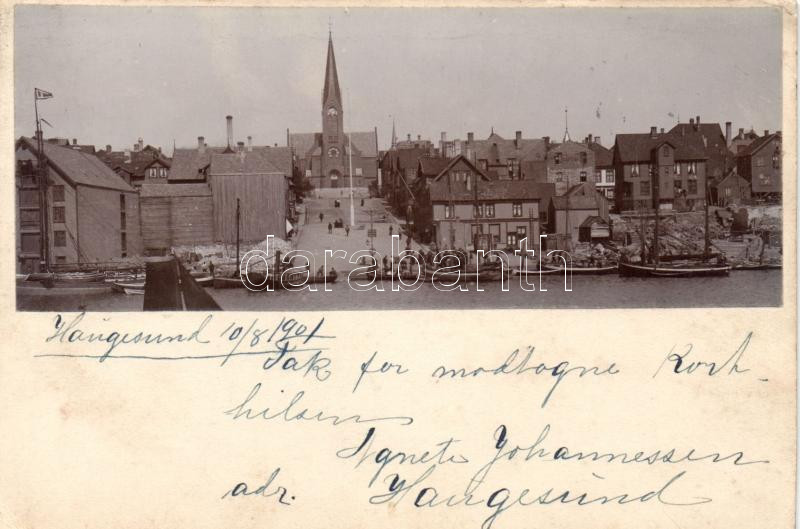 darabanth
Haugesund 10/8 1901
Tak for modtagne Kort-
hilsen
Agnete Johannessen
adr. Haugesund